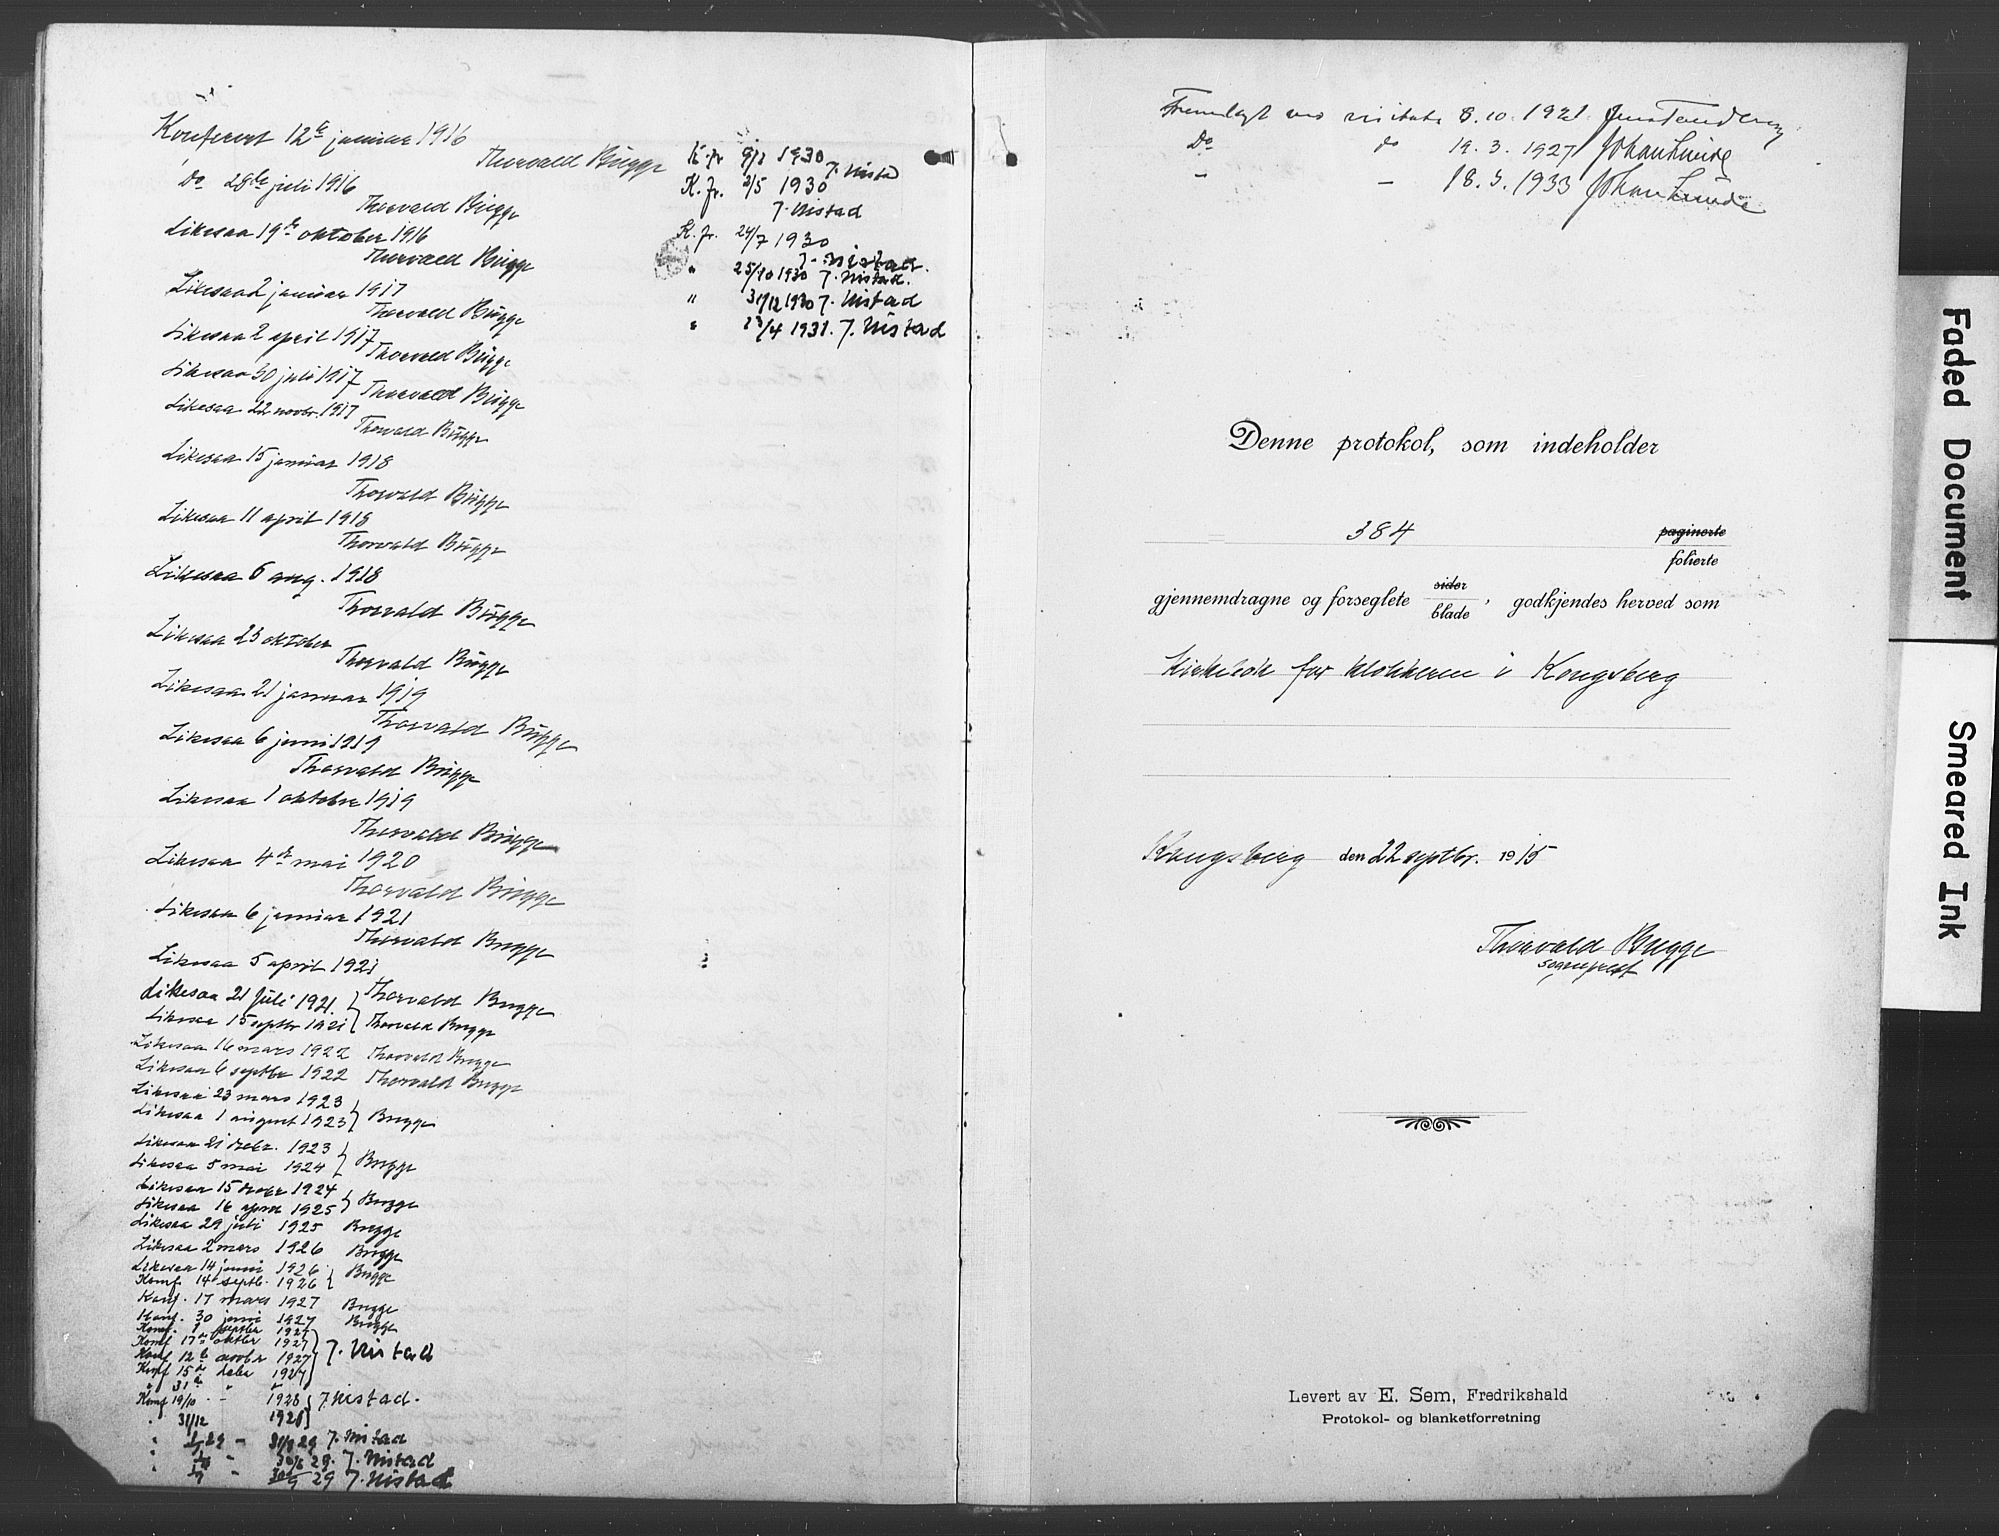 Konferert 12te januar 1916
Thorvald Bugge
Do 28de juli 1916
Thorvald Bugge
Likesaa 19de oktober 1916
Thorvald Bugge
Likesaa 2 januar 1917
Thorvald Bugge
Likesaa 2 april 1917
Thorvald Bugge
Likesaa 30 juli 1917
Thorvald Bugge
Likesaa 22 novbr. 1917
Thorvald Bugge
Likesaa 15 januar 1918
Thorvald Bugge
Likesaa 11 april 1918
Thorvald Bugge
Likesaa 6 aug. 1918
Thorvald Bugge
Likesaa 23 oktober
Thorvald Bugge
Likesaa 21 januar 1919
Thorvald Bugge
Likesaa 6 juni 1919
Thorvald Bugge
Likesaa 1 oktobre 1919
Thorvald Bugge
Likesaa 4de mai 1920
Thorvald Bugge
Likesaa 6 januar 1921
Thorvald Bugge
Likesaa 5 april 1921
Thorvald Bugge
Likesaa 21 Juli 1921.
Likesaa 15 septbr 1921 Thorvald Bugge
Likesaa 16 mars 1922 Thorvald Bugge
Likesaa 6 septbr 1922 Thorvald Bugge
Likesaa 23 mars 1923
Likesaa 1 august 1923 Bugge
Likesaa 21 decbr. 1923
Likesaa 5 mai 1924 Bugge
Likesaa 15 decbr 1924
Likesaa 16 april 1925 Bugge
Likesaa 29 juli 1925 Bugge
Likesaa 2 mars 1926 Bugge
Likesaa 14 juni 1926
Konf. 14 septb. 1926 Bugge
Konf. 17 mars 1927 Bugge
Konf. 30 juni 1927 Bugge
Konf. 1 septbr 1927
Konf 17de oktbr 1927
Konf 12te novbr 1927 J. Nistad
Konf 15de decbr 1927
" 31te " "
Konf 19/10 - 1928 J. Nistad.
" 31/12 1928
29 - 31/3 29 J. Nistad
" - 30/6 29. J. Nistad
" - 30/9 29 J. Nistad
K. fr 9/1 1930
J. Nistad
K. fr. 3/5 1930
J. Nistad
K. fr. 24/7 1930
J. Nistad.
" 25/10 1930 J. Nistad.
" 31/12 1930 J. Nistad
" 23/4 1931. J. Nistad
Fremlagt ved visitats 8.10.1921 Jens Tandberg
Do do 19.3.1927 Johan Lunde
" - 18.5.1933 Johan Lunde
Denne protokol, som indeholder
384 paginerte
folierte
gjennemdragne og forseglete sider
blade, godkjendes herved som
Kirkebok for klokkeren i Kongsberg
Kongsberg den 22 septbr. 1915
Thorvald Bugge
sogneprest
Levert av E. Sem, Fredrikshald
Protokol- og blanketforretning
Faded Document
Smeared Ink